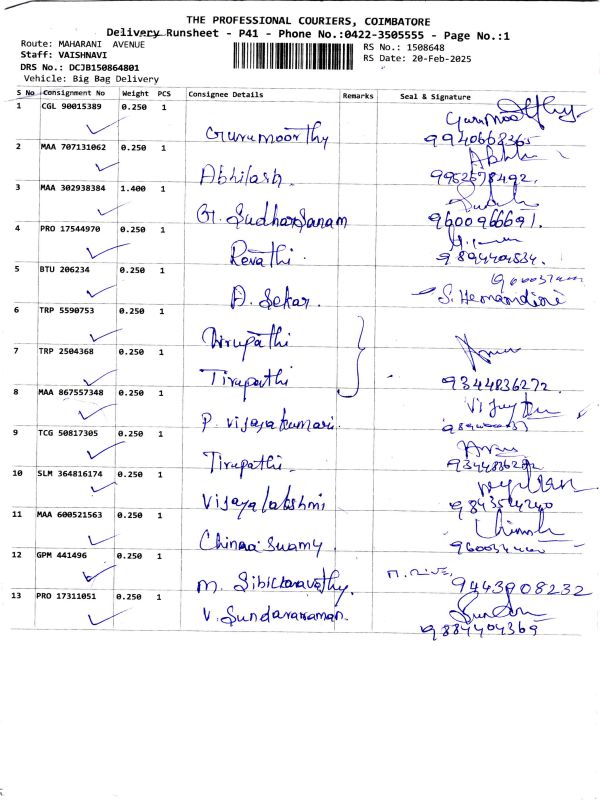 THE PROFESSIONAL COURIERS, COIMBATORE
Delivery Runsheet - P41 - Phone No.:0422-3505555 - Page No.:1
Route: MAHARANI AVENUE
RS No.: 1508648
Staff: VAISHNAVI
RS Date: 20-Feb-2025
DRS No.: DCJB150864801
Vehicle: Big Bag Delivery
S No Consignment No Weight PCS Consignee Details Remarks Seal & Signature
1 CGL 90015389 0.250 1 Gurumoorthy
9940668365
2 MAA 707131062 0.250 1 Abhilash.
9952578492.
3 MAA 302938384 1.400 1 Gr. Sudharsanam
9600966691.
4 PRO 17544970 0.250 1 Revathi.
5 BTU 206234 0.250 1 A. Sekar.
6 TRP 5590753 0.250 1 Thirupathi
7 TRP 2504368 0.250 1 Tirupathi
9344836272.
8 MAA 867557348 0.250 1 P. Vijayakumari.
9 TCG 50817305 0.250 1 Tirupathi.
10 SLM 364816174 0.250 1 Vijayalakshmi
11 MAA 600521563 0.250 1 Chinna Swamy
12 GPM 441496 0.250 1
9443908232
13 PRO 17311051 0.250 1 V. Sundararaman.
9884404369